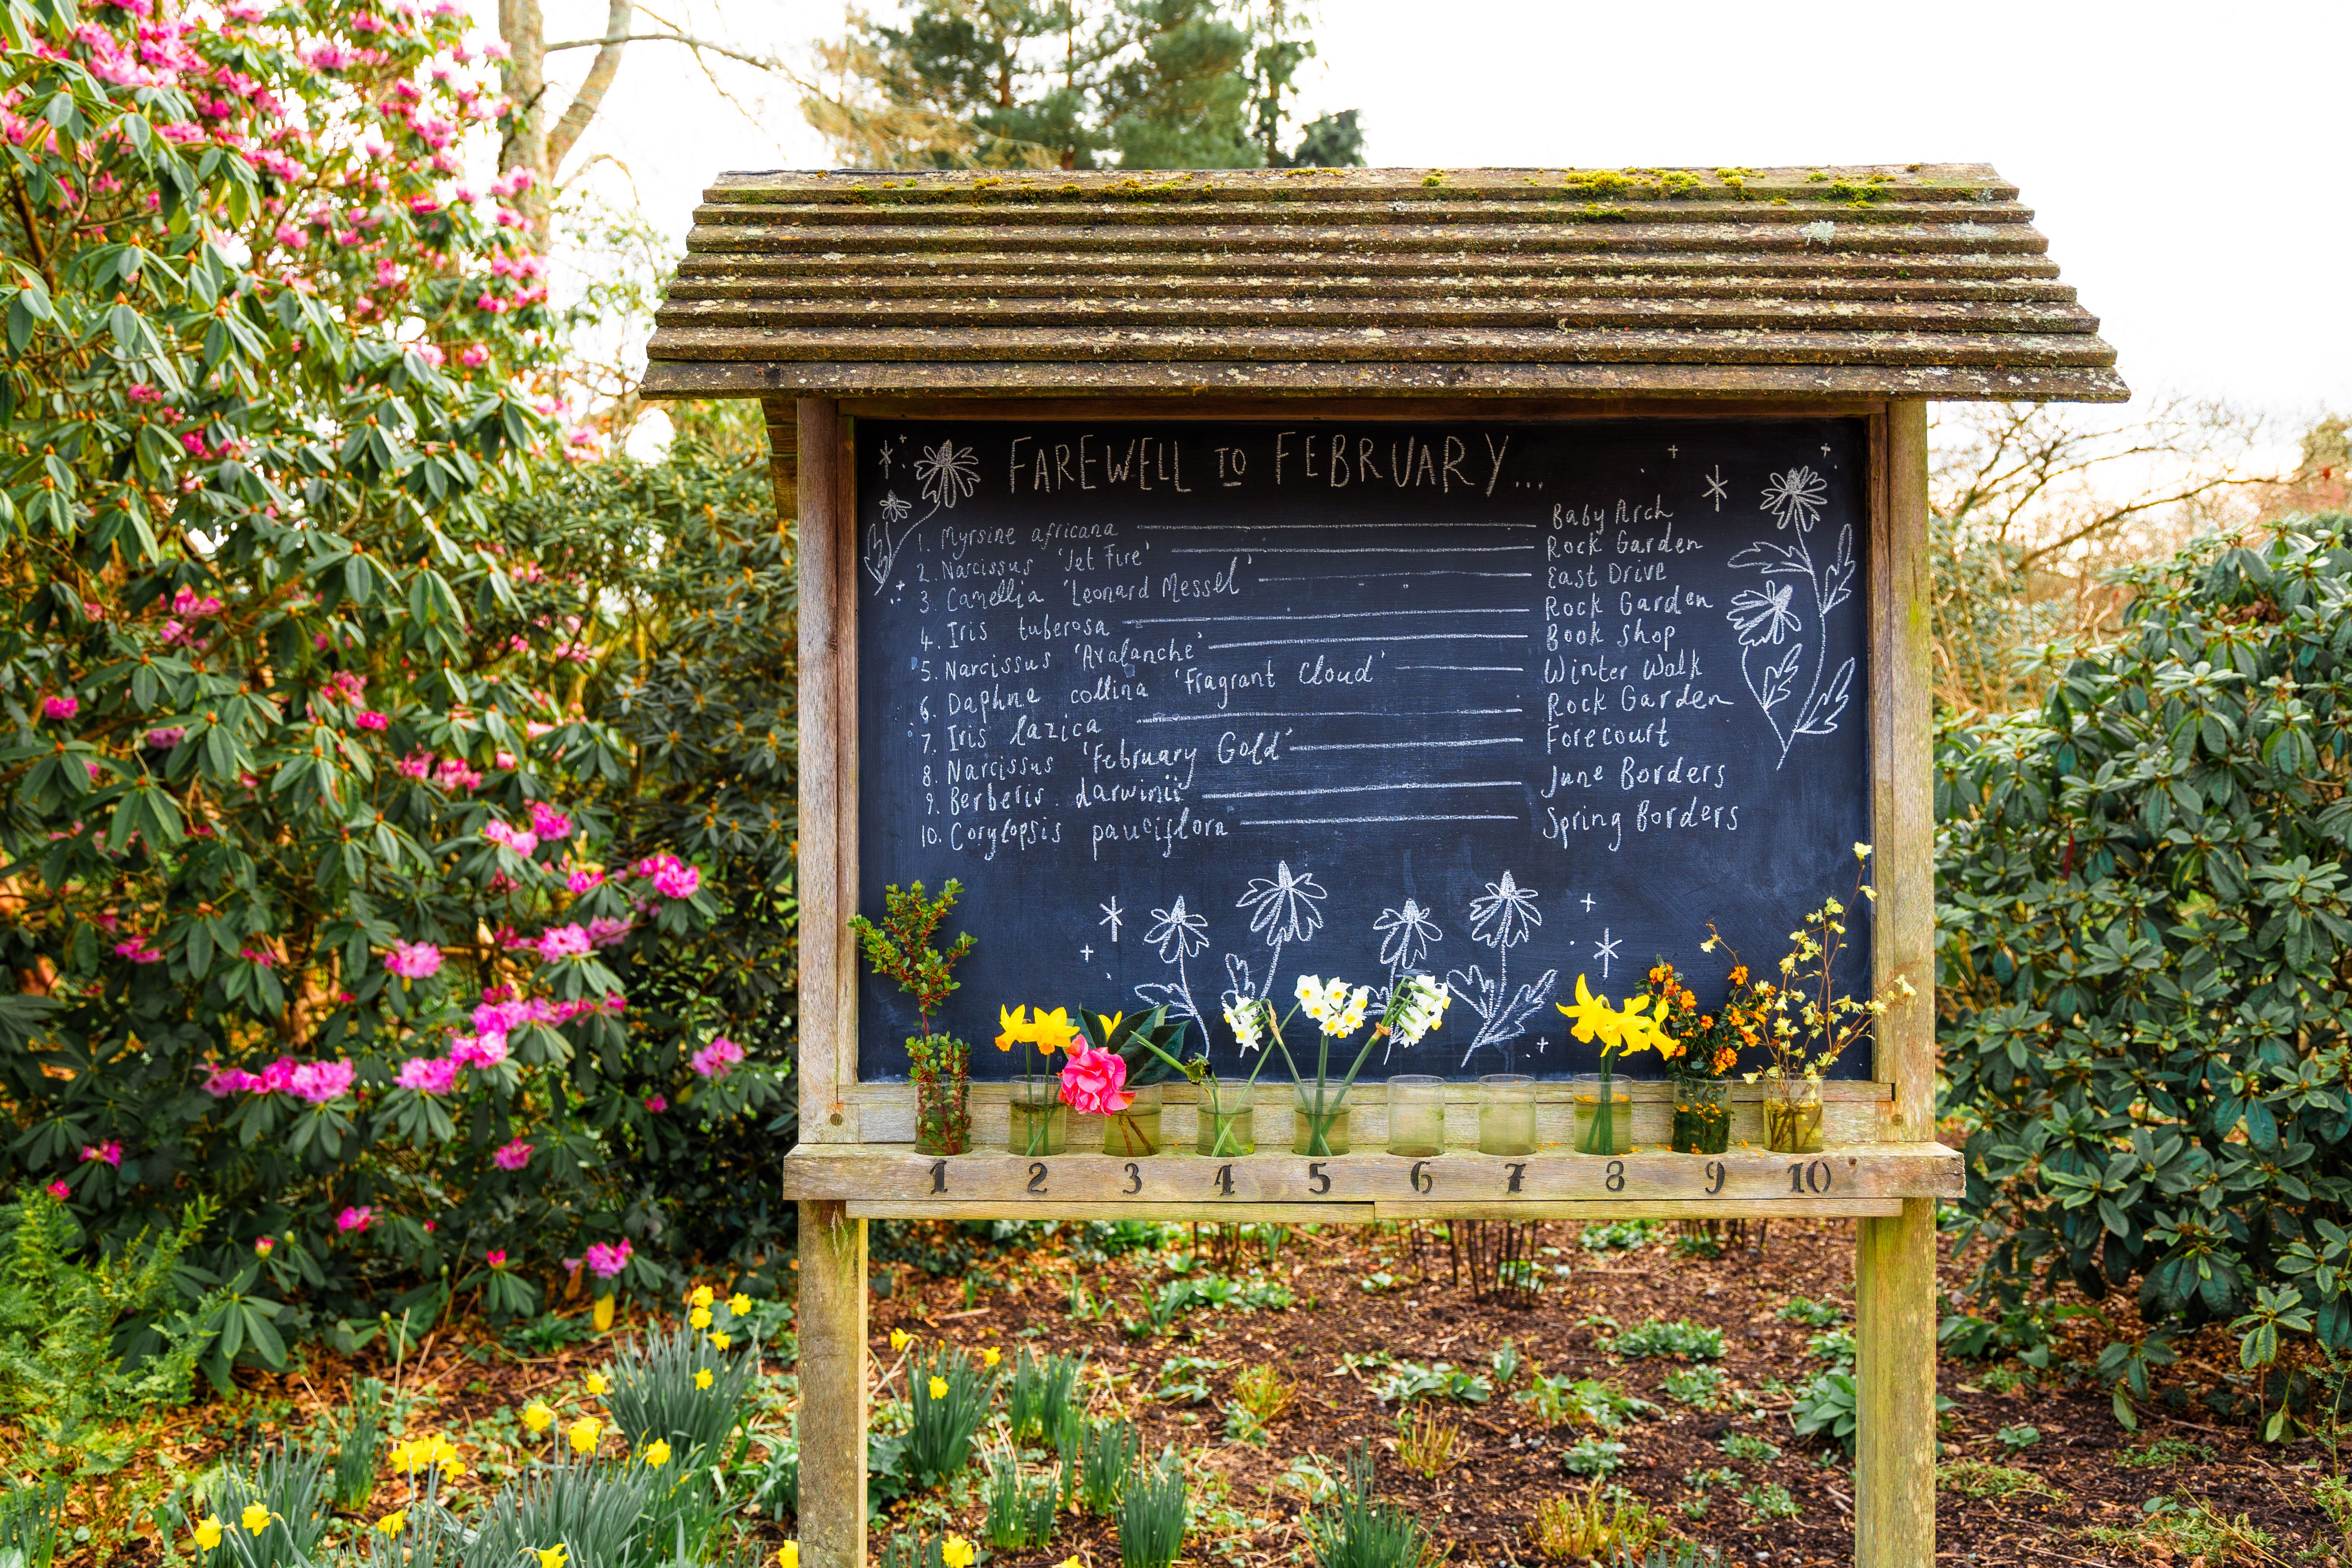 FAREWELL TO FEBRUARY...
1. Myrsine africana Baby Arch
2. Narcissus 'Jet Fire' Rock Garden
3. Camellia 'Leonard Messel' East Drive
4. Iris tuberosa Rock Garden
5. Narcissus 'Avalanche' Book Shop
6. Daphne collina 'Fragrant Cloud' Winter Walk
7. Iris lazica Rock Garden
8. Narcissus 'February Gold' Forecourt
9. Berberis darwinii June Borders
10. Corylopsis pauciflora Spring Borders
1 2 3 4 5 6 7 8 9 10